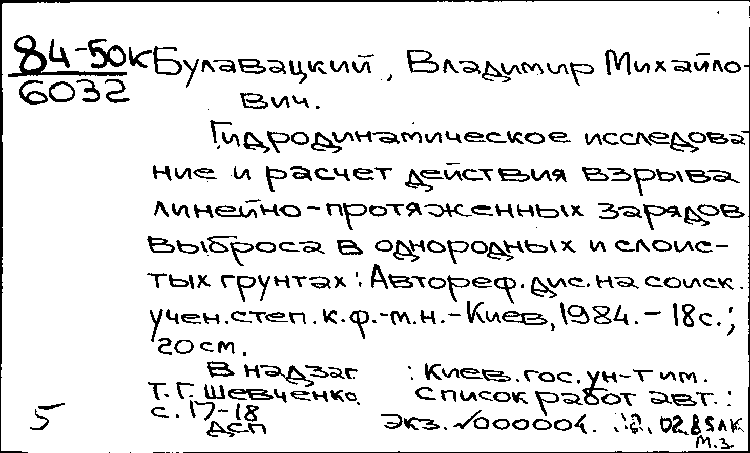 84-50К Булавацкий, Владимир Михайло-
6032 вич.
Гидродинамическое исследова
ние и расчет действия взрыва
линейно-протяженных зарядов
выброса в однородных и слоис-
тых грунтах: Автореф. дис. на соиск.
учен. степ. к.ф.-м.н. - Киев, 1984. - 18с.;
20см.
В надзаг : Киев. гос. ун-т им.
Т.Г. Шевченко. Список работ авт.:
5 с. 17-18 Экз. √000004. 02.85АК
ДСП М.З.